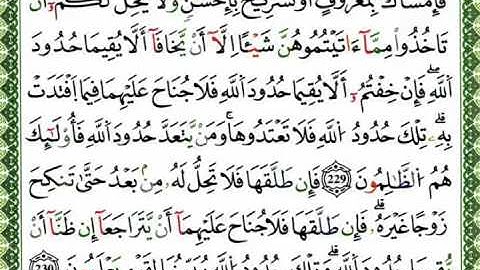 فَإِمْسَاكٌۢ بِمَعْرُوفٍ أَوْ تَسْرِيحٌۢ بِإِحْسَٰنٍۗ وَلَا يَحِلُّ لَكُمْ أَن
تَأْخُذُوا۟ مِمَّآ ءَاتَيْتُمُوهُنَّ شَيْـًٔا إِلَّآ أَن يَخَافَآ أَلَّا يُقِيمَا حُدُودَ
ٱللَّهِۖ فَإِنْ خِفْتُمْ أَلَّا يُقِيمَا حُدُودَ ٱللَّهِ فَلَا جُنَاحَ عَلَيْهِمَا فِيمَا ٱفْتَدَتْ
بِهِۦۗ تِلْكَ حُدُودُ ٱللَّهِ فَلَا تَعْتَدُوهَاۚ وَمَن يَتَعَدَّ حُدُودَ ٱللَّهِ فَأُو۟لَٰٓئِكَ
هُمُ ٱلظَّٰلِمُونَ 229 فَإِن طَلَّقَهَا فَلَا تَحِلُّ لَهُۥ مِنۢ بَعْدُ حَتَّىٰ تَنكِحَ
زَوْجًا غَيْرَهُۥۗ فَإِن طَلَّقَهَا فَلَا جُنَاحَ عَلَيْهِمَآ أَن يَتَرَاجَعَآ إِن ظَنَّآ أَن
يُقِيمَا حُدُودَ ٱللَّهِۗ وَتِلْكَ حُدُودُ ٱللَّهِ يُبَيِّنُهَا لِقَوْمٍ يَعْلَمُونَ 230